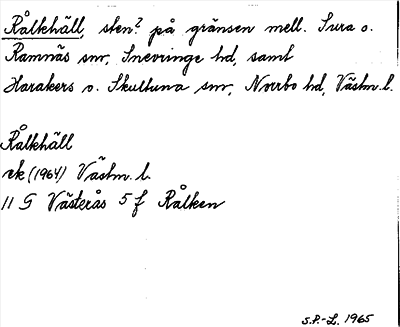 Rålkhäll, sten? på gränsen mell. Sura o.
Ramnäs snr, Snevringe hd, samt
Harakers o. Skultuna snr, Norrbo hd, Västm. l.
Rålkhäll
ek (1964) Västm. l.
11 G Västerås 5 f Rålken
S.P.-L. 1965